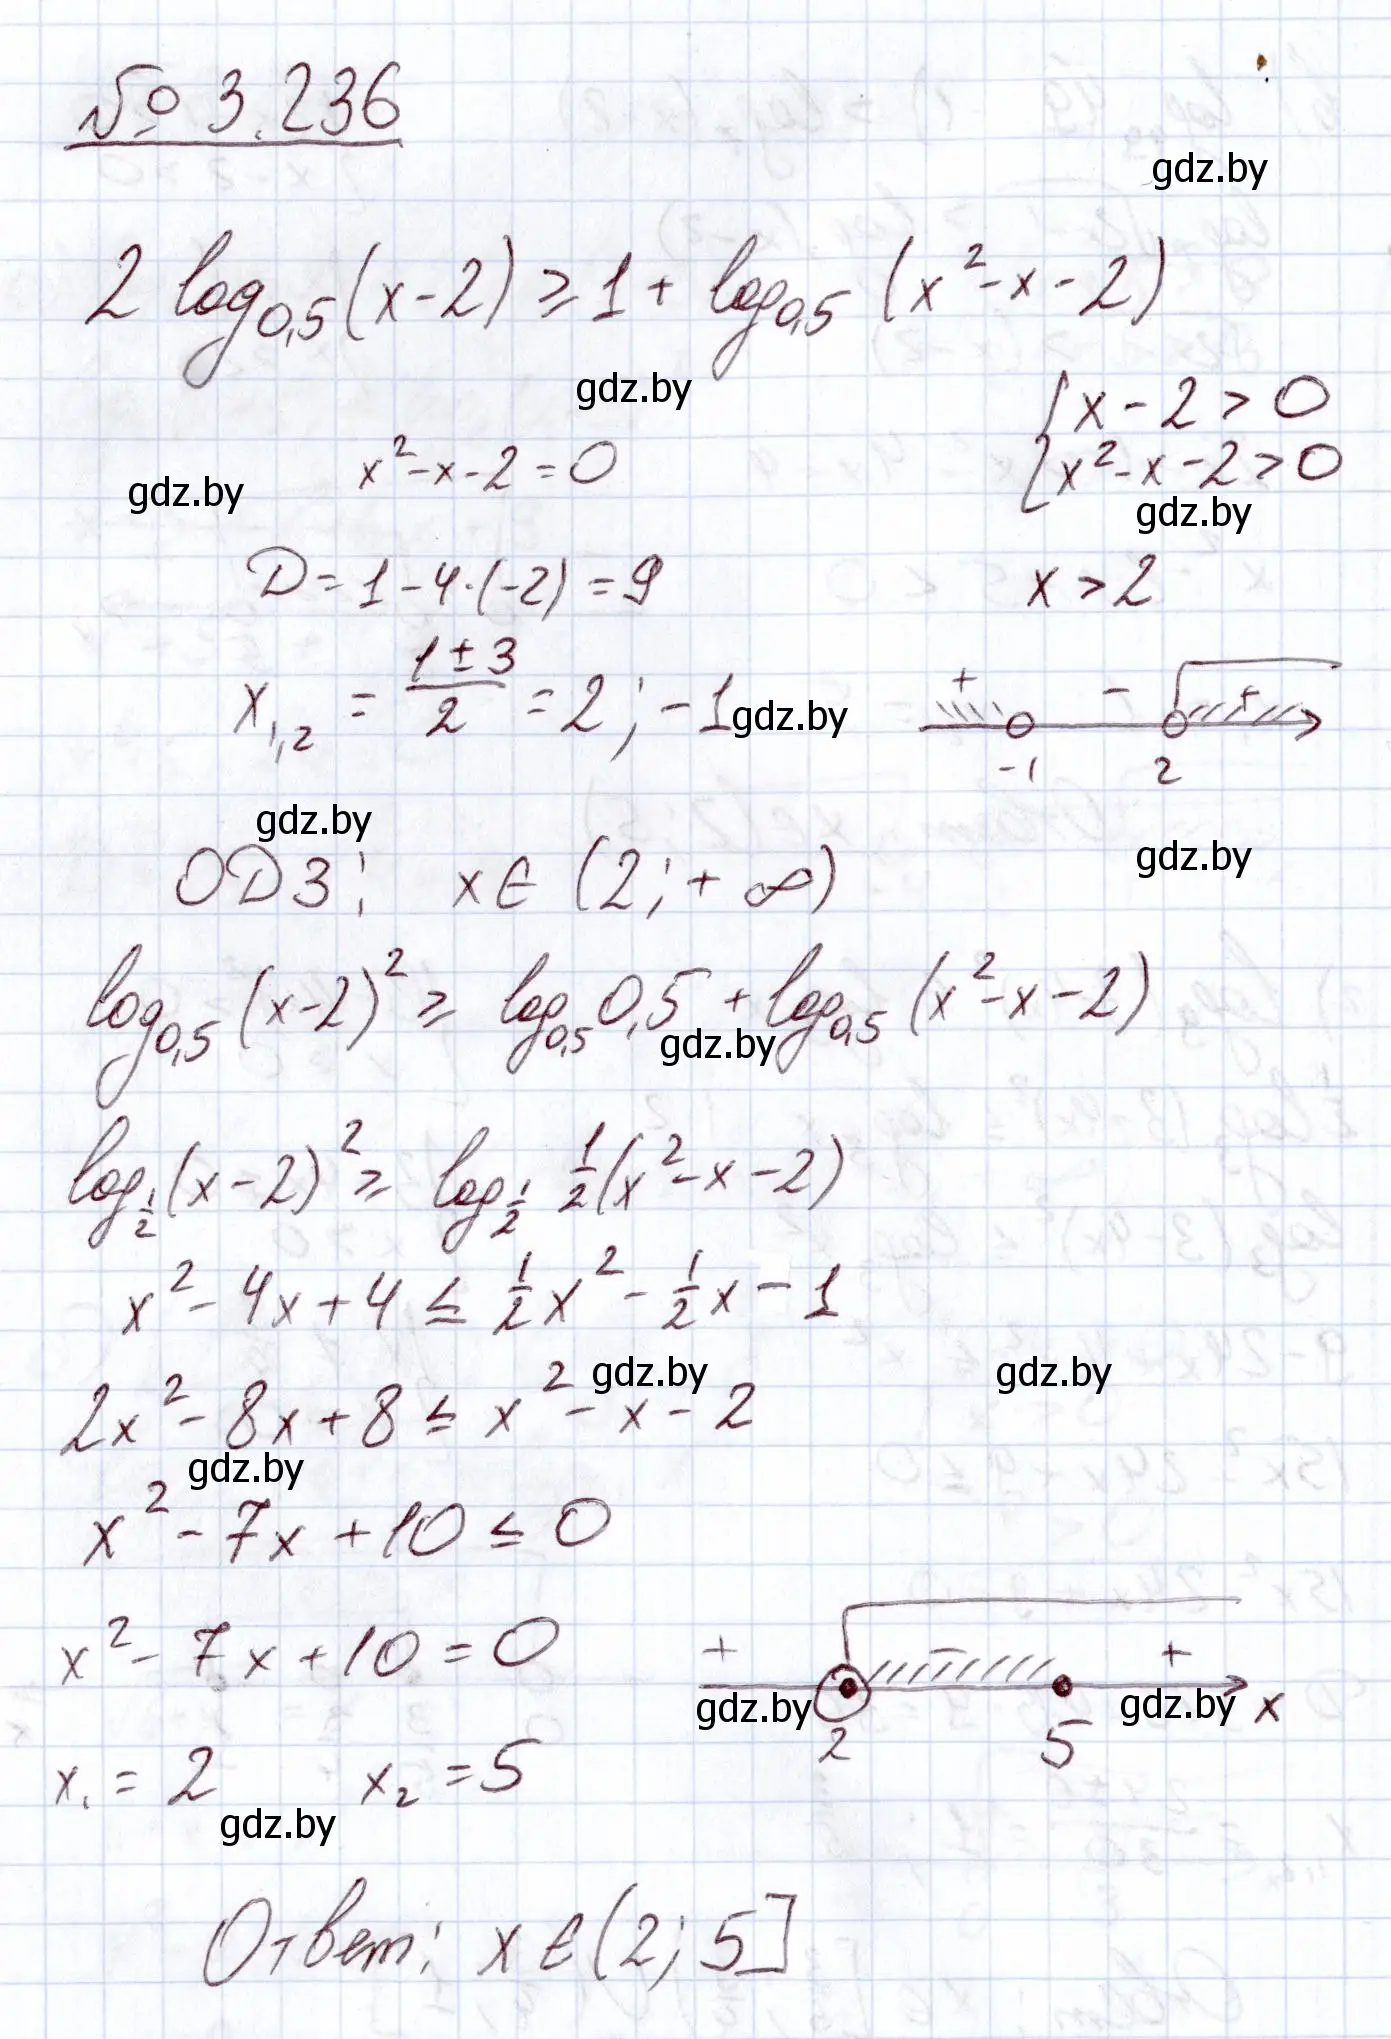 № 3.236
gdz.by
2 log₀,₅(x-2) ≥ 1 + log₀,₅(x²-x-2)
gdz.by
{x-2>0
x²-x-2=0
{x²-x-2>0
gdz.by
gdz.by
D=1-4·(-2)=9
x>2
x₁,₂ = (1±3)/2 = 2; -1
gdz.by
+ - +
-1 2
gdz.by
gdz.by
ОДЗ: x∈(2;+∞)
log₀,₅(x-2)² ≥ log₀,₅0,5 + log₀,₅(x²-x-2)
gdz.by
log₁/₂(x-2)² ≥ log₁/₂ 1/2(x²-x-2)
x²-4x+4 ≤ 1/2x² - 1/2x - 1
gdz.by
gdz.by
2x²-8x+8 ≤ x²-x-2
gdz.by
x²-7x+10 ≤ 0
x²-7x+10=0
+ - +
gdz.by
gdz.by
x
2 5
x₁=2 x₂=5
gdz.by
Ответ: x∈(2;5]